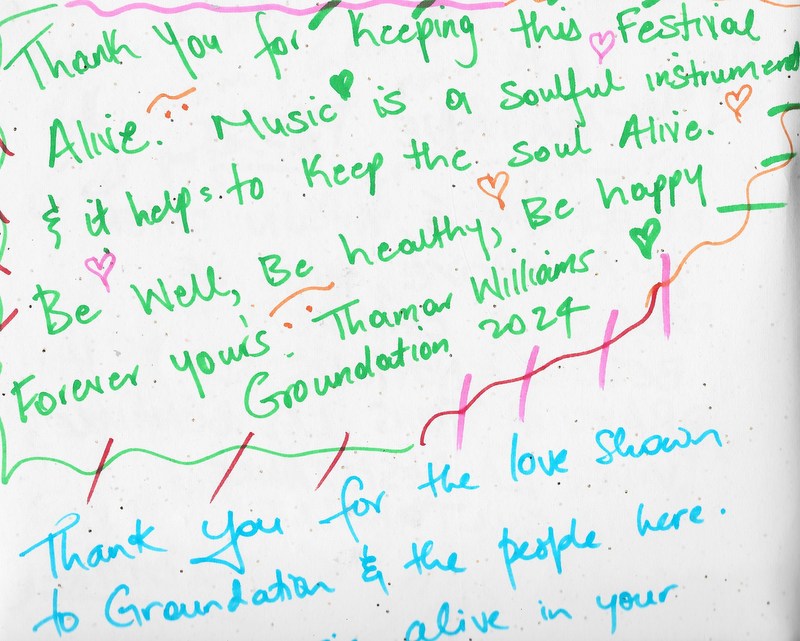 Thank You for Keeping this Festival
Alive. Music is a soulful instrument
& it helps to Keep the soul Alive.
Be Well, Be healthy, Be happy
Forever yours Thamar Williams
Groundation 2024
Thank you for the love shown
to Groundation & the people here.
alive in your